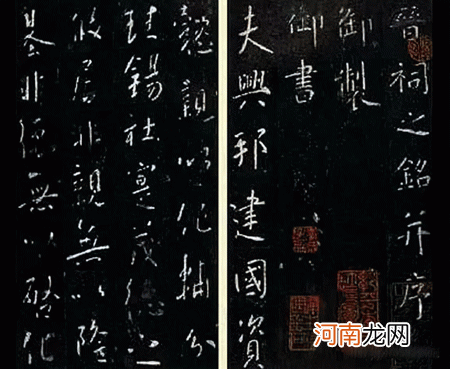 晉祠之銘并序
御製
御書
夫興邦建國資
懿親以作輔分
珪錫社寔茂德之
攸居非親無以隆
基非德無以啓化
河南龙网